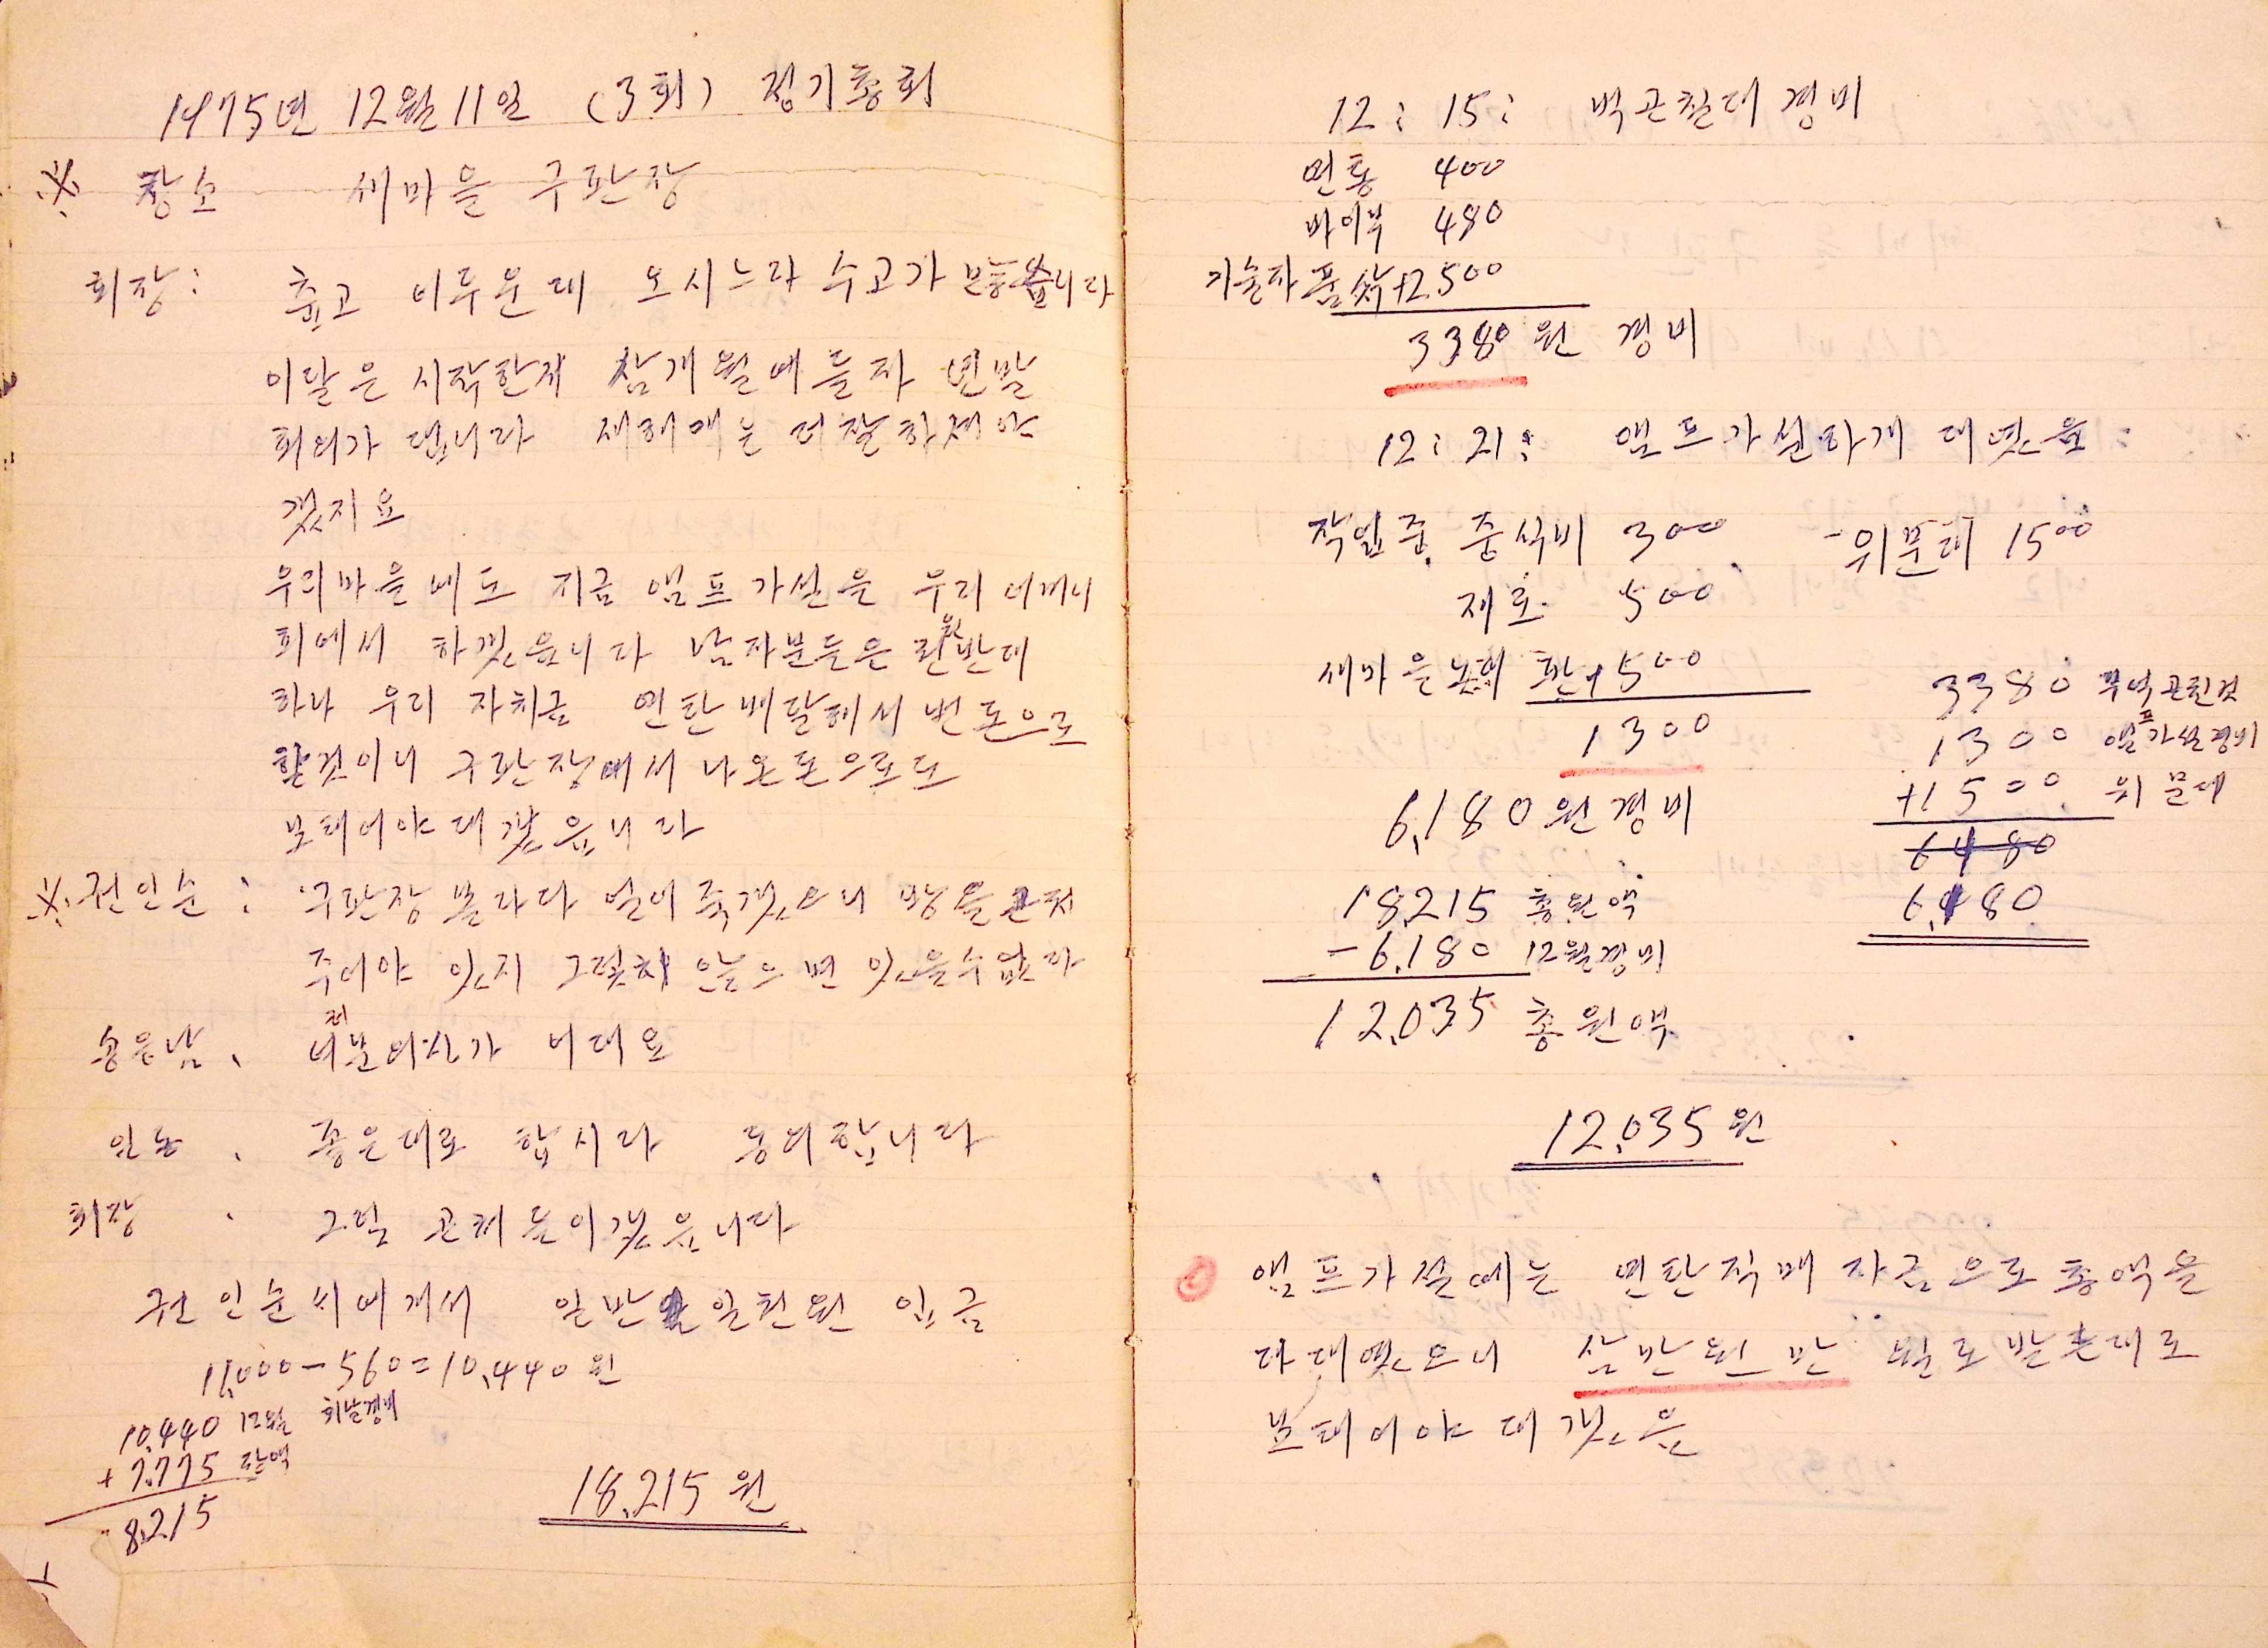 1975년 12월 11일 (3회) 정기총회
※ 장소 새마을 구판장
회장: 춥고 어두운데 오시느라 수고가 많습니다
이달은 시작한지 삼개월에 들자 연말
회의가 댑니다 새해에는 더 잘
겠지요
우리마을에도 지금 앰프가설을 우리 어머니
회에서 하겟읍니다 남자분들은
하나 우리 자치금 연탄배달해서 번돈으로
할것이니 구판장에서 나온돈으로도
보태어야 대겟읍니다
※ 권인순: 구판장 볼라다 얼어 죽겟으니 방을 곤처
주어야 잇지 그렇치 안을으면 잇을수 업다
송은남、 저분 여사가 어대요
일동、 좋은대로 합시다 동의합니다
회장、 그럼 곤처 들이겟읍니다
권인순씨에게서 일반 일천원 입금
11,000-560=10,440원
10,440 12월
+7,775 잔액
8,215
18,215원
12: 15: 벽곤칠대 경비
연통 400
바이부 480
기술자 품삭+2,500
3380원 경비
12: 21: 앰프가설하게 대엿음:
작업중 중식비 300 -위문대 1500
재료 500
새마을 +500
1300
3380
1300 앰프가설경비
+1500 위문대
6480
6,180
6,180원경비
18,215 총원액
-6,180 12월경비
12,035 총원액
12,035원
앰프가설에는 연탄직매 자금으로 총액을
다 대엿으니 삼만원만
보태어야 대겟음